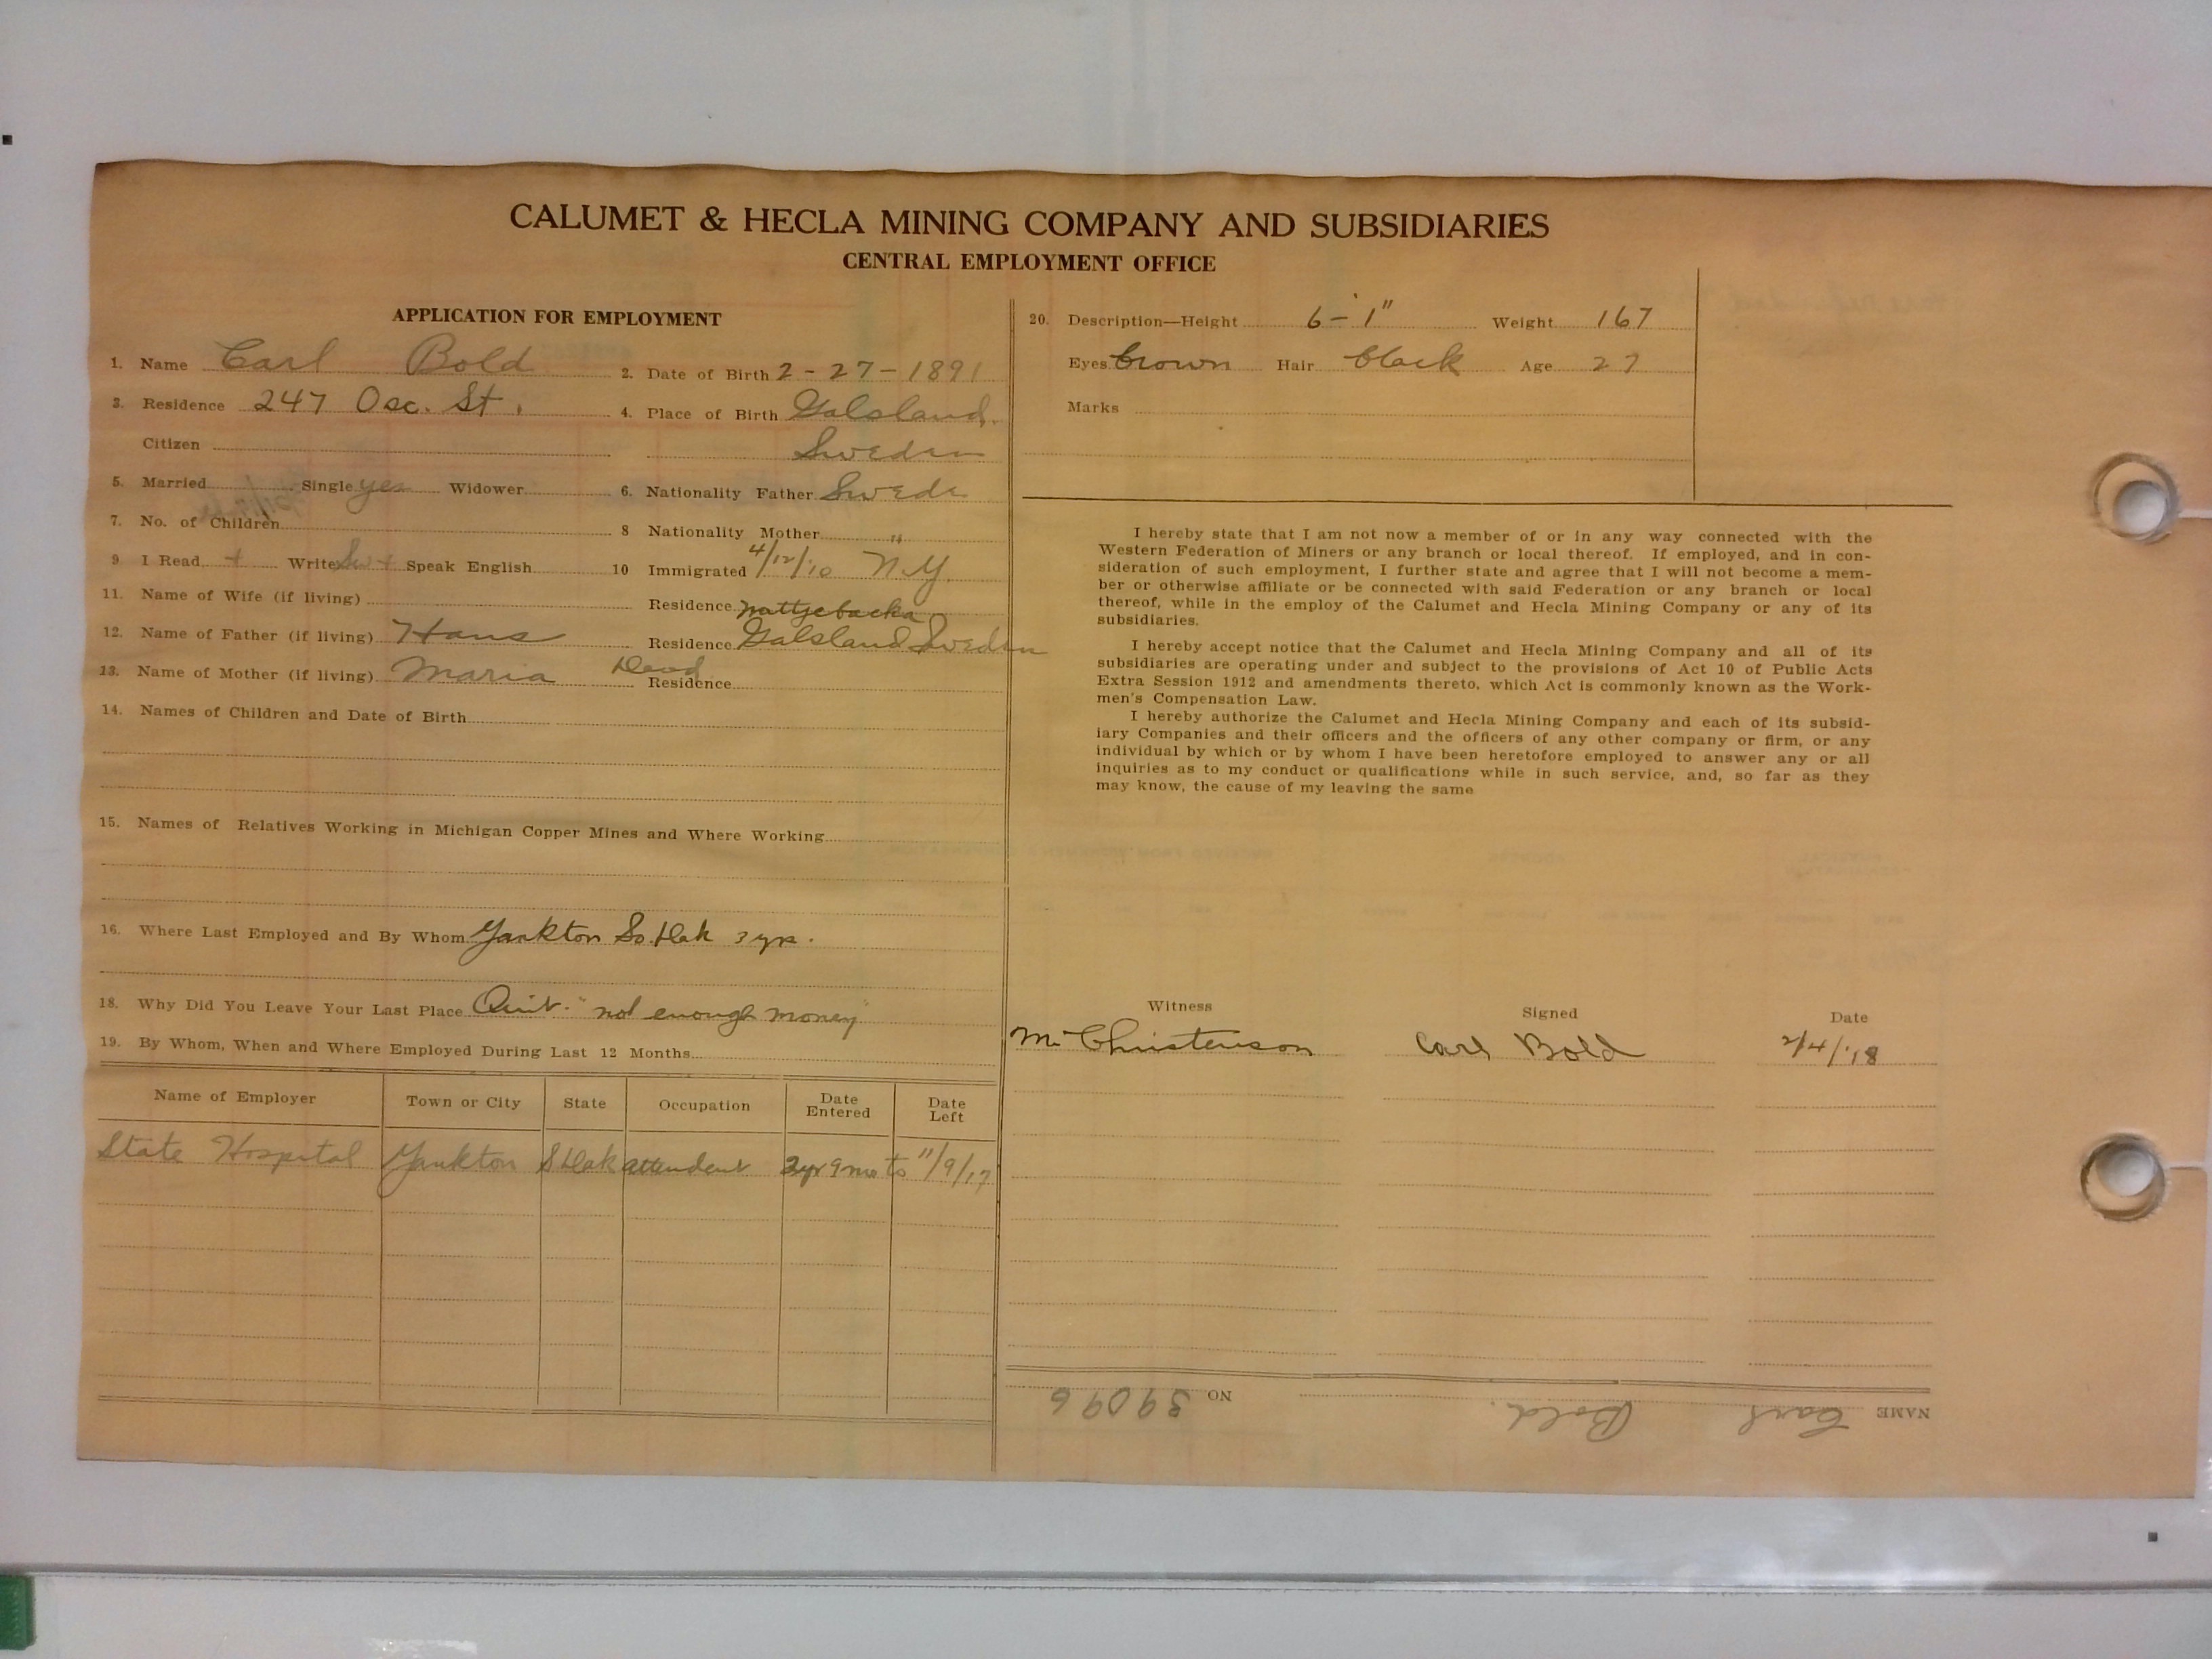 CALUMET & HECLA MINING COMPANY AND SUBSIDIARIES
CENTRAL EMPLOYMENT OFFICE
APPLICATION FOR EMPLOYMENT
1. Name Carl Bold
2. Date of Birth 2-27-1891
3. Residence 247 Osc. St.
4. Place of Birth Dalsland,
Citizen
Sweden
5. Married Single yes Widower
6. Nationality Father Swede
7. No. of Children
8 Nationality Mother "
9 I Read + Write Sw + Speak English
10 Immigrated 4/12/10 N.Y.
11. Name of Wife (if living)
Residence
12. Name of Father (if living) Hans
Residence Dalsland Sweden
13. Name of Mother (if living) Maria Dead
Residence
14. Names of Children and Date of Birth
15. Names of Relatives Working in Michigan Copper Mines and Where Working
16. Where Last Employed and By Whom Yankton So. Dak 3 yrs.
18. Why Did You Leave Your Last Place Quit. "not enough money"
19. By Whom, When and Where Employed During Last 12 Months
Name of Employer Town or City State Occupation Date Entered Date Left
State Hospital Yankton S Dak attendent 2yr 9mo to 11/9/17
20. Description—Height 6-1" Weight 167
Eyes brown Hair black Age 27
Marks
I hereby state that I am not now a member of or in any way connected with the
Western Federation of Miners or any branch or local thereof. If employed, and in con-
sideration of such employment, I further state and agree that I will not become a mem-
ber or otherwise affiliate or be connected with said Federation or any branch or local
thereof, while in the employ of the Calumet and Hecla Mining Company or any of its
subsidiaries.
I hereby accept notice that the Calumet and Hecla Mining Company and all of its
subsidiaries are operating under and subject to the provisions of Act 10 of Public Acts
Extra Session 1912 and amendments thereto, which Act is commonly known as the Work-
men's Compensation Law.
I hereby authorize the Calumet and Hecla Mining Company and each of its subsid-
iary Companies and their officers and the officers of any other company or firm, or any
individual by which or by whom I have been heretofore employed to answer any or all
inquiries as to my conduct or qualifications while in such service, and, so far as they
may know, the cause of my leaving the same
Witness Signed Date
M Christenson Carl Bold 2/4/'18
NAME Carl Bold. NO 39096